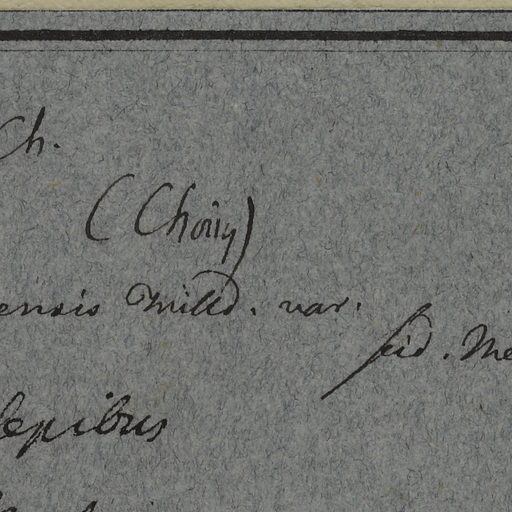 Ch.
(Choisy)
ensis Willd. var.
fid. Me
sepibus